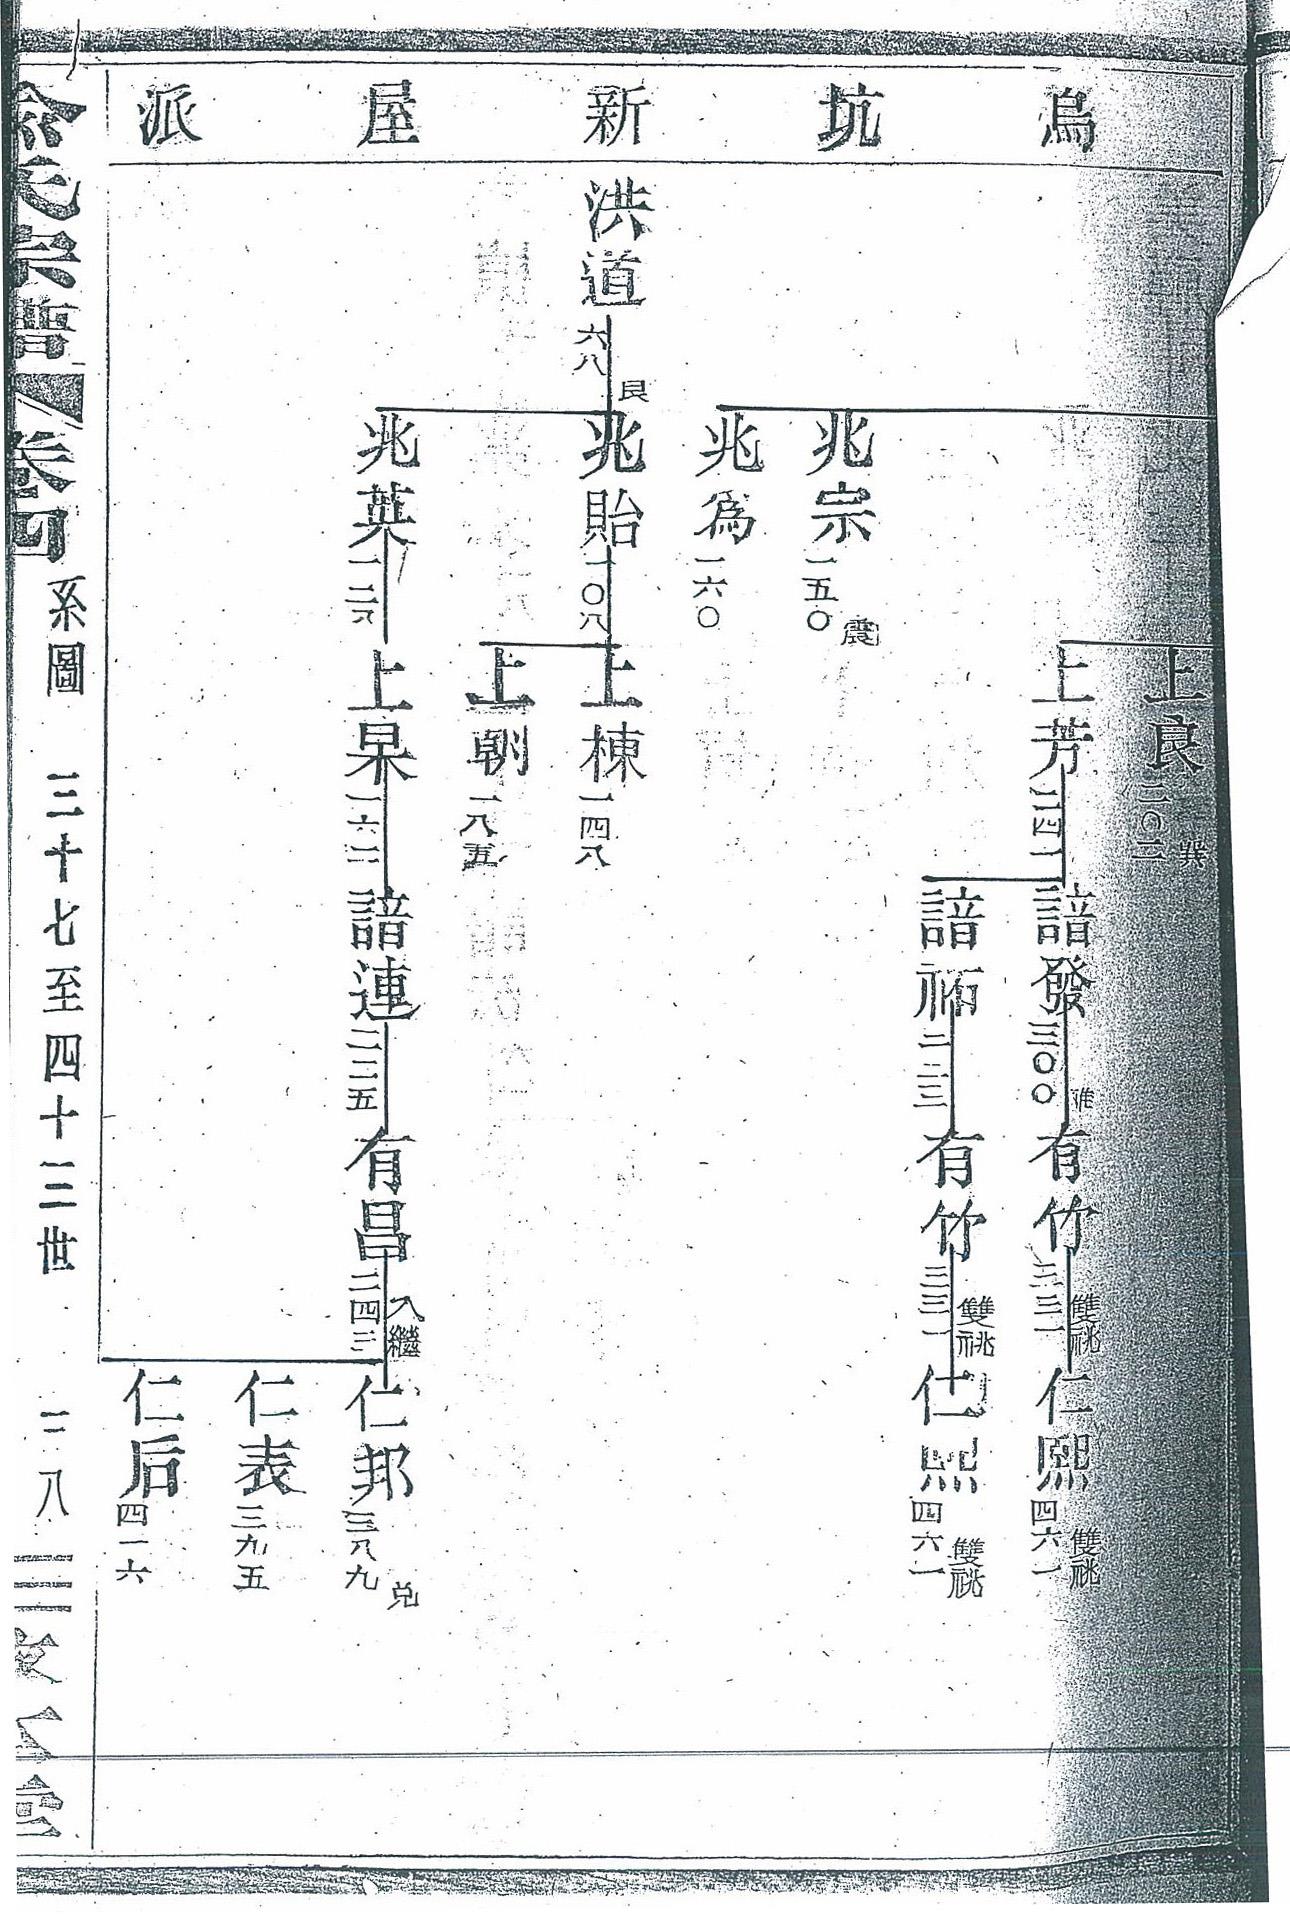 烏坑新屋派
上良
二〇二
巽
上芳
二四一
諳發
三〇〇
有竹
三三一
雙祧
仁熙
四六一
雙祧
諳祏
有竹
三三一
雙祧
仁熙
四六一
雙祧
兆宗
一五〇
震
兆為
一六〇
洪道
六八
艮
兆貽
一〇八
上棟
一四八
上朝
一八五
兆英
上杲
一六二
諳連
有昌
二四三
入繼
仁邦
三八九
兌
仁表
三九五
仁后
四一六
俞氏宗譜
卷四
系圖
三十七至四十二世
二八